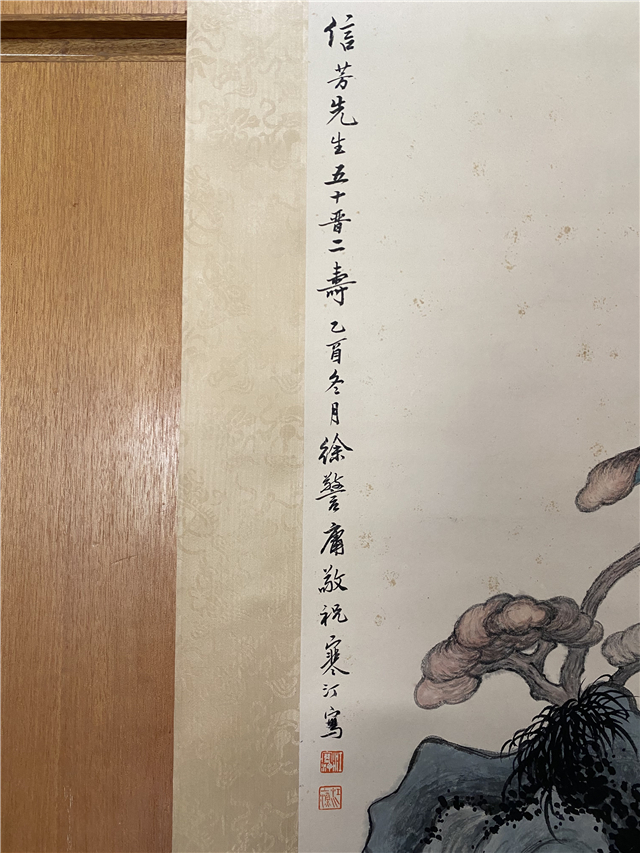 信芳先生五十晋二壽乙酉冬月徐警庸敬祝寒汀寫